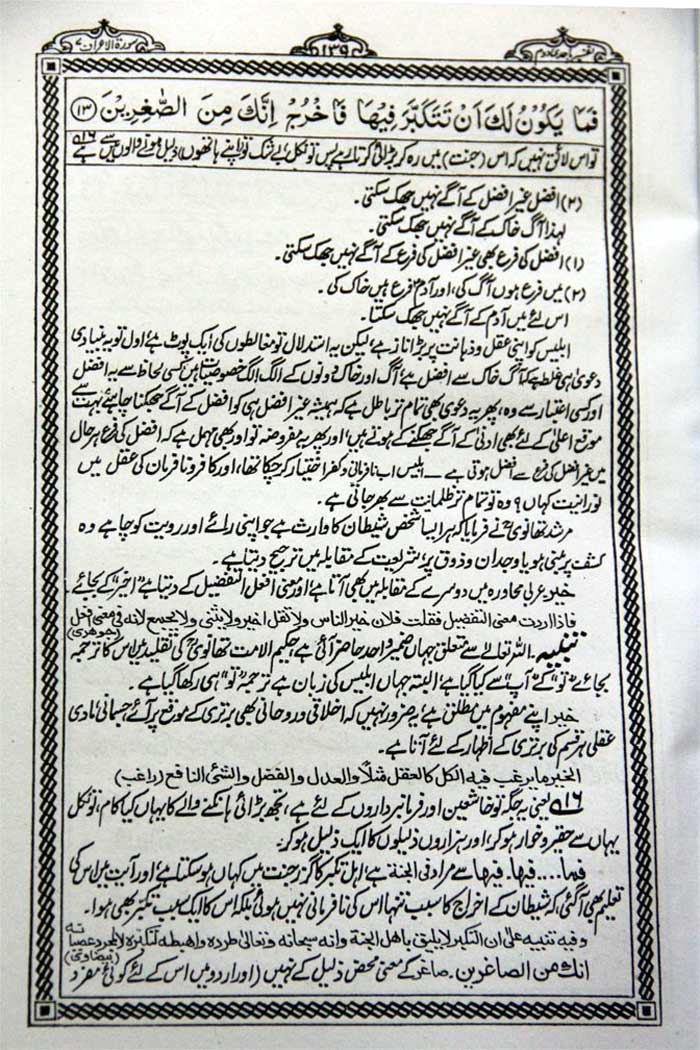 تفسیر ماجدی دوم ۱۳۹ سورۃ الاعراف ۷
فَمَا يَكُوْنُ لَكَ اَنْ تَتَكَبَّرَ فِيْهَا فَاخْرُجْ اِنَّكَ مِنَ الصّٰغِرِيْنَ ۝۱۳
تو اس لائق نہیں کہ اس (جنت) میں رہ کر بڑائی کرتا رہے پس تو نکل، بے شک تو (اپنے ہاتھوں) ذلیل ہونے والوں میں سے ہے ۵۱۶
(۲) افضل غیر افضل کے آگے نہیں جھک سکتی۔
لہذا آگ خاک کے آگے نہیں جھک سکتی۔
(۱) افضل کی فرع بھی غیر افضل کی فرع کے آگے نہیں جھک سکتی۔
(۲) میں فرع ہوں آگ کی، اور آدم فرع ہیں خاک کی۔
اس لئے میں آدم کے آگے نہیں جھک سکتا۔
ابلیس کو اپنی عقل و ذہانت پر بڑا ناز ہے، لیکن یہ استدلال تو مغالطوں کی ایک پوٹ ہے، اول تو یہ بنیادی
دعویٰ ہی غلط ہے کہ آگ خاک سے افضل ہے، آگ اور خاک دونوں کے الگ الگ خصوصیات ہیں، کسی لحاظ سے یہ افضل
اور کسی اعتبار سے وہ، پھر یہ دعویٰ بھی تمام تر باطل ہے کہ ہمیشہ غیر افضل ہی کو افضل کے آگے جھکنا چاہیے، بہت سے
موقع اعلیٰ کے لئے بھی ادنیٰ کے آگے جھکنے کے ہوتے ہیں، اور پھر یہ مفروضہ تو اور بھی مہمل ہے کہ افضل کی فرع ہر حال
میں غیر افضل کی فرع سے افضل ہوتی ہے ـــ ابلیس اب نافرمانی و کفر اختیار کر چکا تھا، اور کافر و نافرمان کی عقل میں
نورانیت کہاں؟ وہ تو تمام تر ظلمانیت سے بھر جاتی ہے۔
مرشد تھانویؒ نے فرمایا کہ ہر ایسا شخص شیطان کا وارث ہے جو اپنی رائے اور رویت کو چاہے وہ
کشف پر مبنی ہو یا وجدان و ذوق پر، شریعت کے مقابلہ میں ترجیح دیتا ہے۔
خیر، عربی محاورہ میں دوسرے کے مقابلہ میں بھی آتا ہے، اور معنی افعل التفضیل کے دیتا ہے، "اخیر" کے بجائے۔
فاذا اردت معنی التفضیل فقلت فلان خیر الناس ولا تقل اخیر ولا یثنی ولا یجمع لانه فی معنی افعل (جوهری)
تنبیہ۔ اللہ تعالےٰ سے متعلق جہاں ضمیر واحد حاضر آئی ہے، حکیم الامت تھانویؒ کی تقلید میں اس کا ترجمہ
بجائے "تو" کے "آپ" سے کیا گیا ہے، البتہ جہاں ابلیس کی زبان ہے ترجمہ "تو" ہی رکھا گیا ہے۔
خیر اپنے مفہوم میں مطلق ہے، یہ ضرور نہیں کہ اخلاقی و روحانی بھی برتری کے موقع پر آئے، جسمانی، مادی
عقلی ہر قسم کی برتری کے اظہار کے لئے آتا ہے۔
الخیر ما یرغب فیه الکل کالعقل مثلا والعدل والفضل والشئی النافع (راغب)
۵۱۶ یعنی یہ جگہ تو خاشعین اور فرمانبرداروں کے لئے ہے، تجھ بڑائی ہانکنے والے کا یہاں کیا کام، تو نکل
یہاں سے حقیر و خوار ہو کر، اور ہزاروں ذلیلوں کا ایک ذلیل ہو کر۔
فیها .... فیها۔ فیها سے مراد فی الجنة ہے، اہل تکبر کا گزر جنت میں کہاں ہو سکتا ہے، اور آیت میں اس کی
تعلیم بھی آگئی، کہ شیطان کے اخراج کا سبب تنہا اس کی نافرمانی نہیں ہوئی بلکہ اس کا ایک سبب تکبر بھی ہوا۔
وفیه تنبیه علی ان التکبر لا یلیق باهل الجنة وانه سبحانه وتعالیٰ طرده واهبطه لتکبره لا لمجرد عصیانه (بیضاوی)
انك من الصاغرین۔ صاغر کے معنی محض ذلیل کے نہیں (اور اردو میں اس کے لئے کوئی مفرد